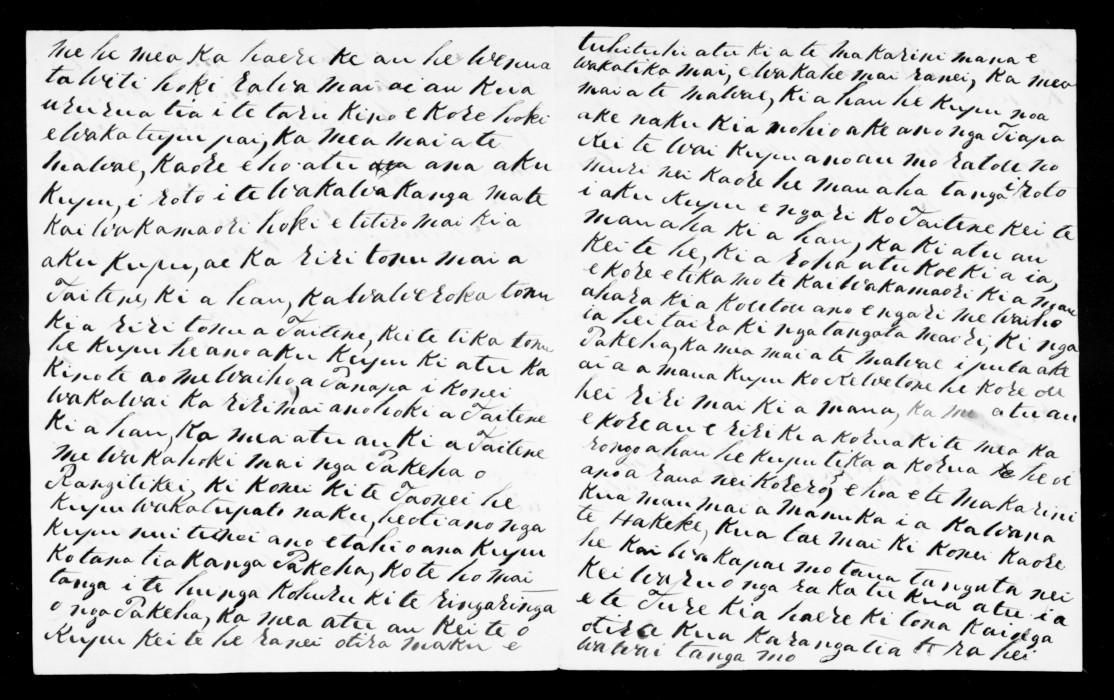 me he mea Ka haere ke au he wenua
tawiti hoki Eawa mai ai au Kua
ururua tia i te taru Kino e Kore hoki
e waka tupu pai, Ka mea mai a te
mawae, Kaore e ho atu ana aku
Kupu, i roto i te waKawa Kanga ma te
Kai waKamaori hoki e titiro mai Ki a
aku Kupu, ae Ka riri tonu mai a
Taitene, Ki a hau, Ka wawe roKa tonu
Ki a riri tonu a Taitene, Kei te tika tonu
he Kupu he ano aku Kupu Ki atu Ka
Kino te ao me waiho, a Panapa i Konei
wakawai Ka riri mai ano hoki a Taitene
Ki a hau, Ka mea atu au Ki a Taitene
me wakahoki mai nga Pakeha o
Rangitikei, Ki Konei Ki te Taone i he
Kupu wakatupato naku, heoti ano nga
Kupu nui ano etahi o ana Kupu
Ko tana tiaKanga Pakeha, Ko te ho mai
tanga i te hunga Kohuru Ki te ringaringa
o nga Pakeha, Ka mea atu au Kei te o
Kupu Kei te he ranei otira maku e
tuhituhi atu Ki a te Makarini mana e
wakatika mai, e wakahe mai ranei, Ka mea
mai a te mawae, Ki a hau he Kupu noa
ake naku Kia mohio ake ano nga Tiapa
Kei te wai Kupu ano au mo ratou no
muri nei Kaore he manaha tanga i roto
i aku Kupu e ngari Ko Taitene Kei te
manaha Ki a hau, Ka Ki atu au
Kei te he, Ki a roha atu Koe Ki a ia,
e Kore e tika mo te Kai waKamaori Ki a mau
ahara Ki a Koutou ano e ngari me waiho
ia hei tai ra Ki nga tangata maori, Ki nga
Pakeha, Ka mea mai a te mawae i puta ake
ai a a mana Kupu Ko Ke wetone he Kore ou
hei riri mai Ki a mana, Ka me atu au
e Kore au e riri Ki a Korua Ki te mea Ka
rongo ahau he Kupu tika a Korua heoi
ano a raua nei Korero, e hoa e te Makarini
Kua mau mai a Manuka i a Kawana
te Hakeke, Kua tae mai Ki Konei Kaore
he Kai wakapae mo taua tangata nei
Kei waru o nga ra Ka tu Kua atu i a
e te Ture Ki a haere Ki tona Kainga
otira Kua Karangatia tt ra hei
wawai tanga mo